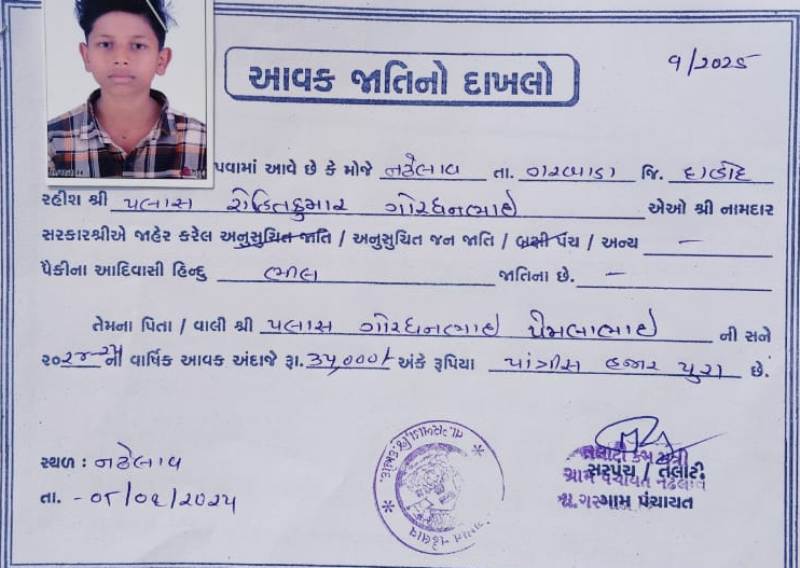 9/2025
આવક જાતિનો દાખલો
પવામાં આવે છે કે મોજે નઢેલાવ તા. ગરબાડા જિ. દાહોદ
રહીશ શ્રી પલાસ રોહિતકુમાર ગોરધનભાઇ એઓ શ્રી નામદાર
સરકારશ્રીએ જાહેર કરેલ અનુસુચિત જાતિ / અનુસુચિત જન જાતિ / બક્ષી પંચ / અન્ય —
પૈકીના આદિવાસી હિન્દુ ભીલ જાતિના છે. —
તેમના પિતા / વાલી શ્રી પલાસ ગોરધનભાઇ પ્રેમલાભાઇ ની સને
૨૦૨૪-૨૫ ની વાર્ષિક આવક અંદાજે રૂા. 35,000/- અંકે રૂપિયા પાંત્રીસ હજાર પુરા છે.
સ્થળ : નઢેલાવ
સરપંચ / તલાટી
તા. -
ગ્રામ પંચાયત